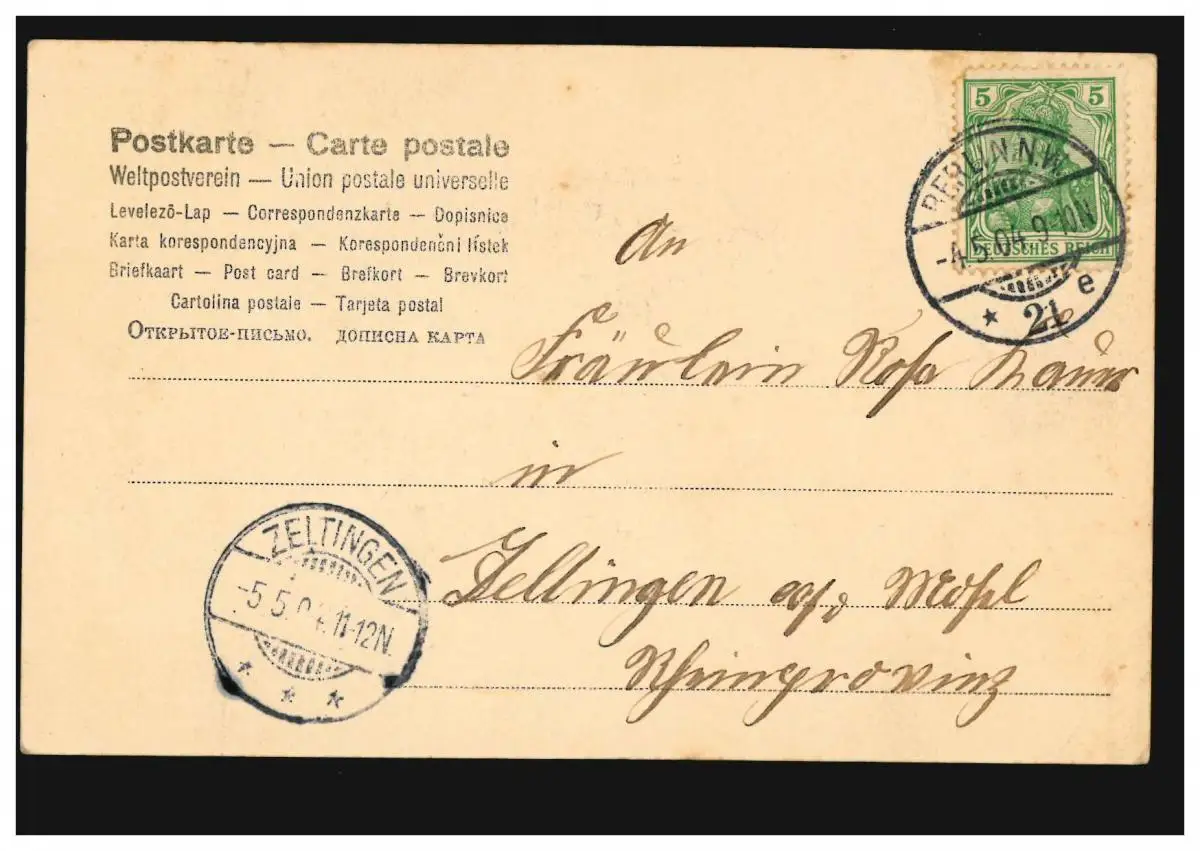 Postkarte — Carte postale
Weltpostverein — Union postale universelle
Levelező-Lap — Correspondenzkarte — Dopisnica
Karta korespondencyjna — Korespondenční lístek
Briefkaart — Post card — Brefkort — Brevkort
Cartolina postale — Tarjeta postal
Открытое-письмо. дописна карта
5 5
DEUTSCHES REICH
BERLIN, N.W.
-4.5.04.9-10N
* 21 e
An
Fräulein Rosa
in
Zeltingen a/d Mosel
Rheinprovinz
ZELTINGEN
-5.5.04.11-12N.
* * *